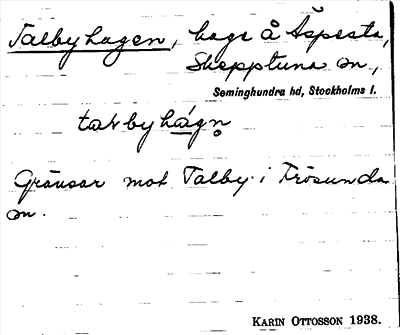 Talbyhagen, hage å Äspesta,
Skepptuna sn,
Seminghundra hd, Stockholms l.
Gränsar mot Talby i Frösunda
sn.
KARIN OTTOSSON 1938.